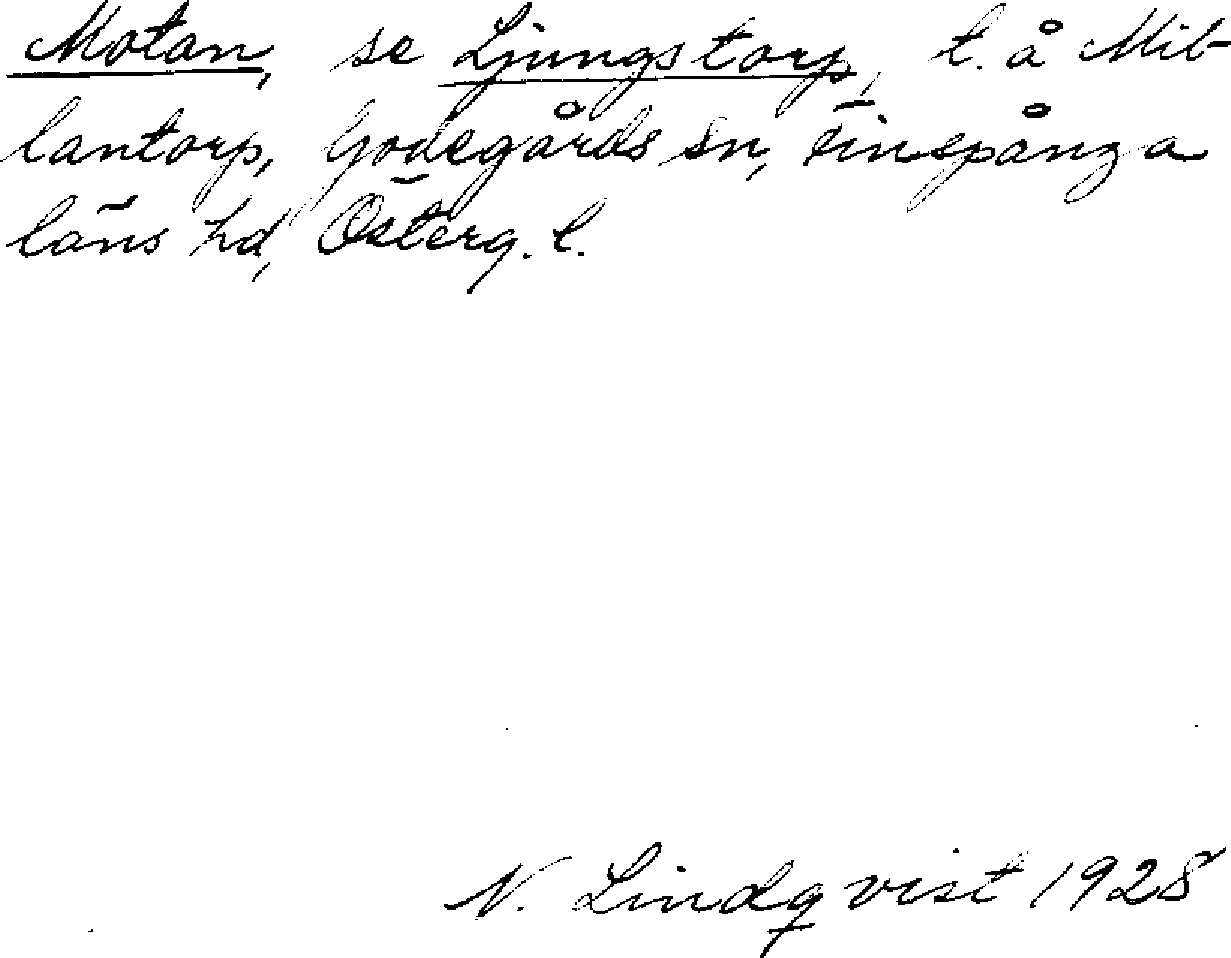 Motan, se Ljungstorp, t. å Mib-
lantorp, Godegårds sn, Finspånga
läns hd, Österg. l.
N. Lindqvist 1928